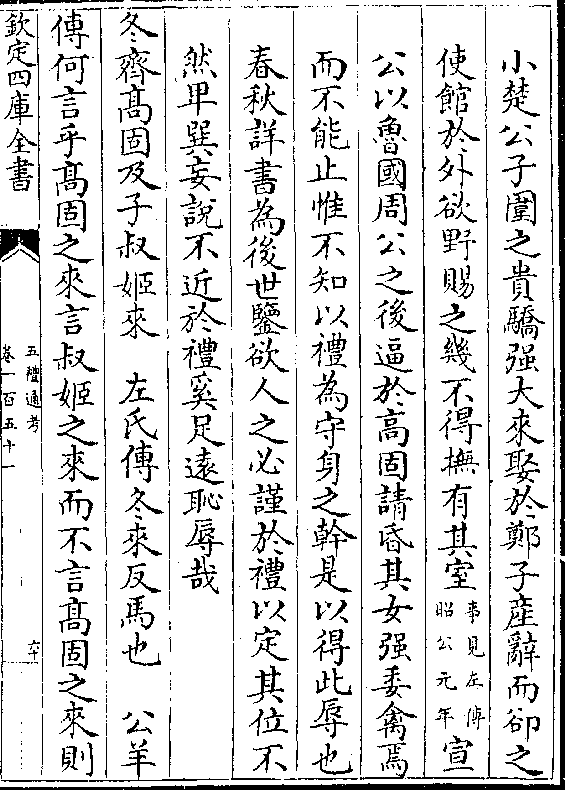 小楚公子圍之貴驕强大來娶於鄭子産辭而卻之
使館於外欲野賜之幾不得撫有其室事見左傳昭公元年宣
公以魯國周公之後逼於高固請昏其女强委禽焉
而不能止惟不知以禮為守身之幹是以得此辱也
春秋詳書為後世鑒欲人之必謹於禮以定其位不
然卑巽妄說不近於禮奚足遠恥辱哉
冬齊髙固及子叔姬來　左氏傳冬來反馬也　公羊
傳何言乎髙固之來言叔姬之來而不言髙固之來則
欽定四庫全書
五禮通考
卷一百五十一
六十